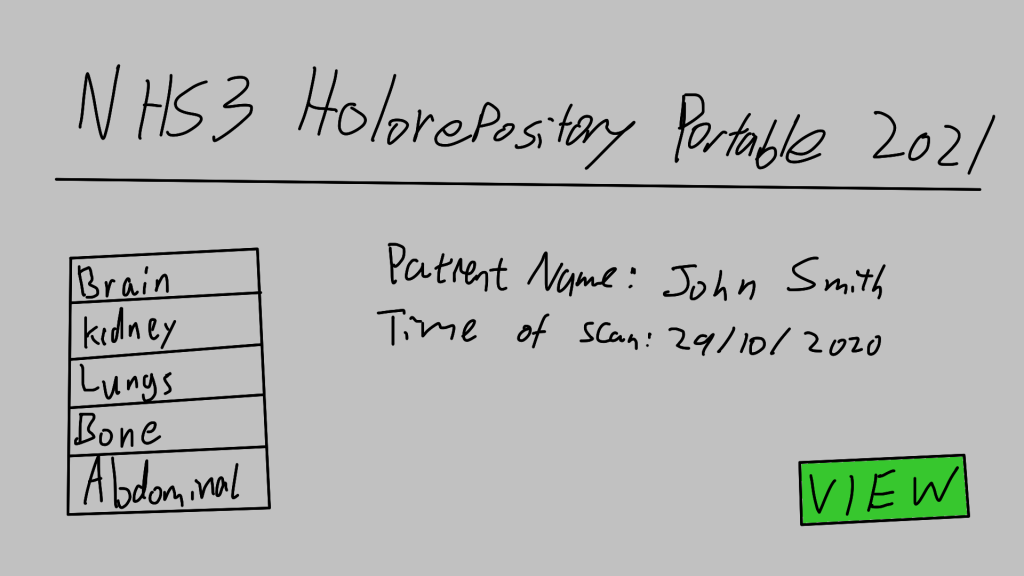 NHS3 Holorepository Portable 2021
Brain
Kidney
Lungs
Bone
Abdominal
Patient Name: John Smith
Time of scan: 29/10/2020
VIEW